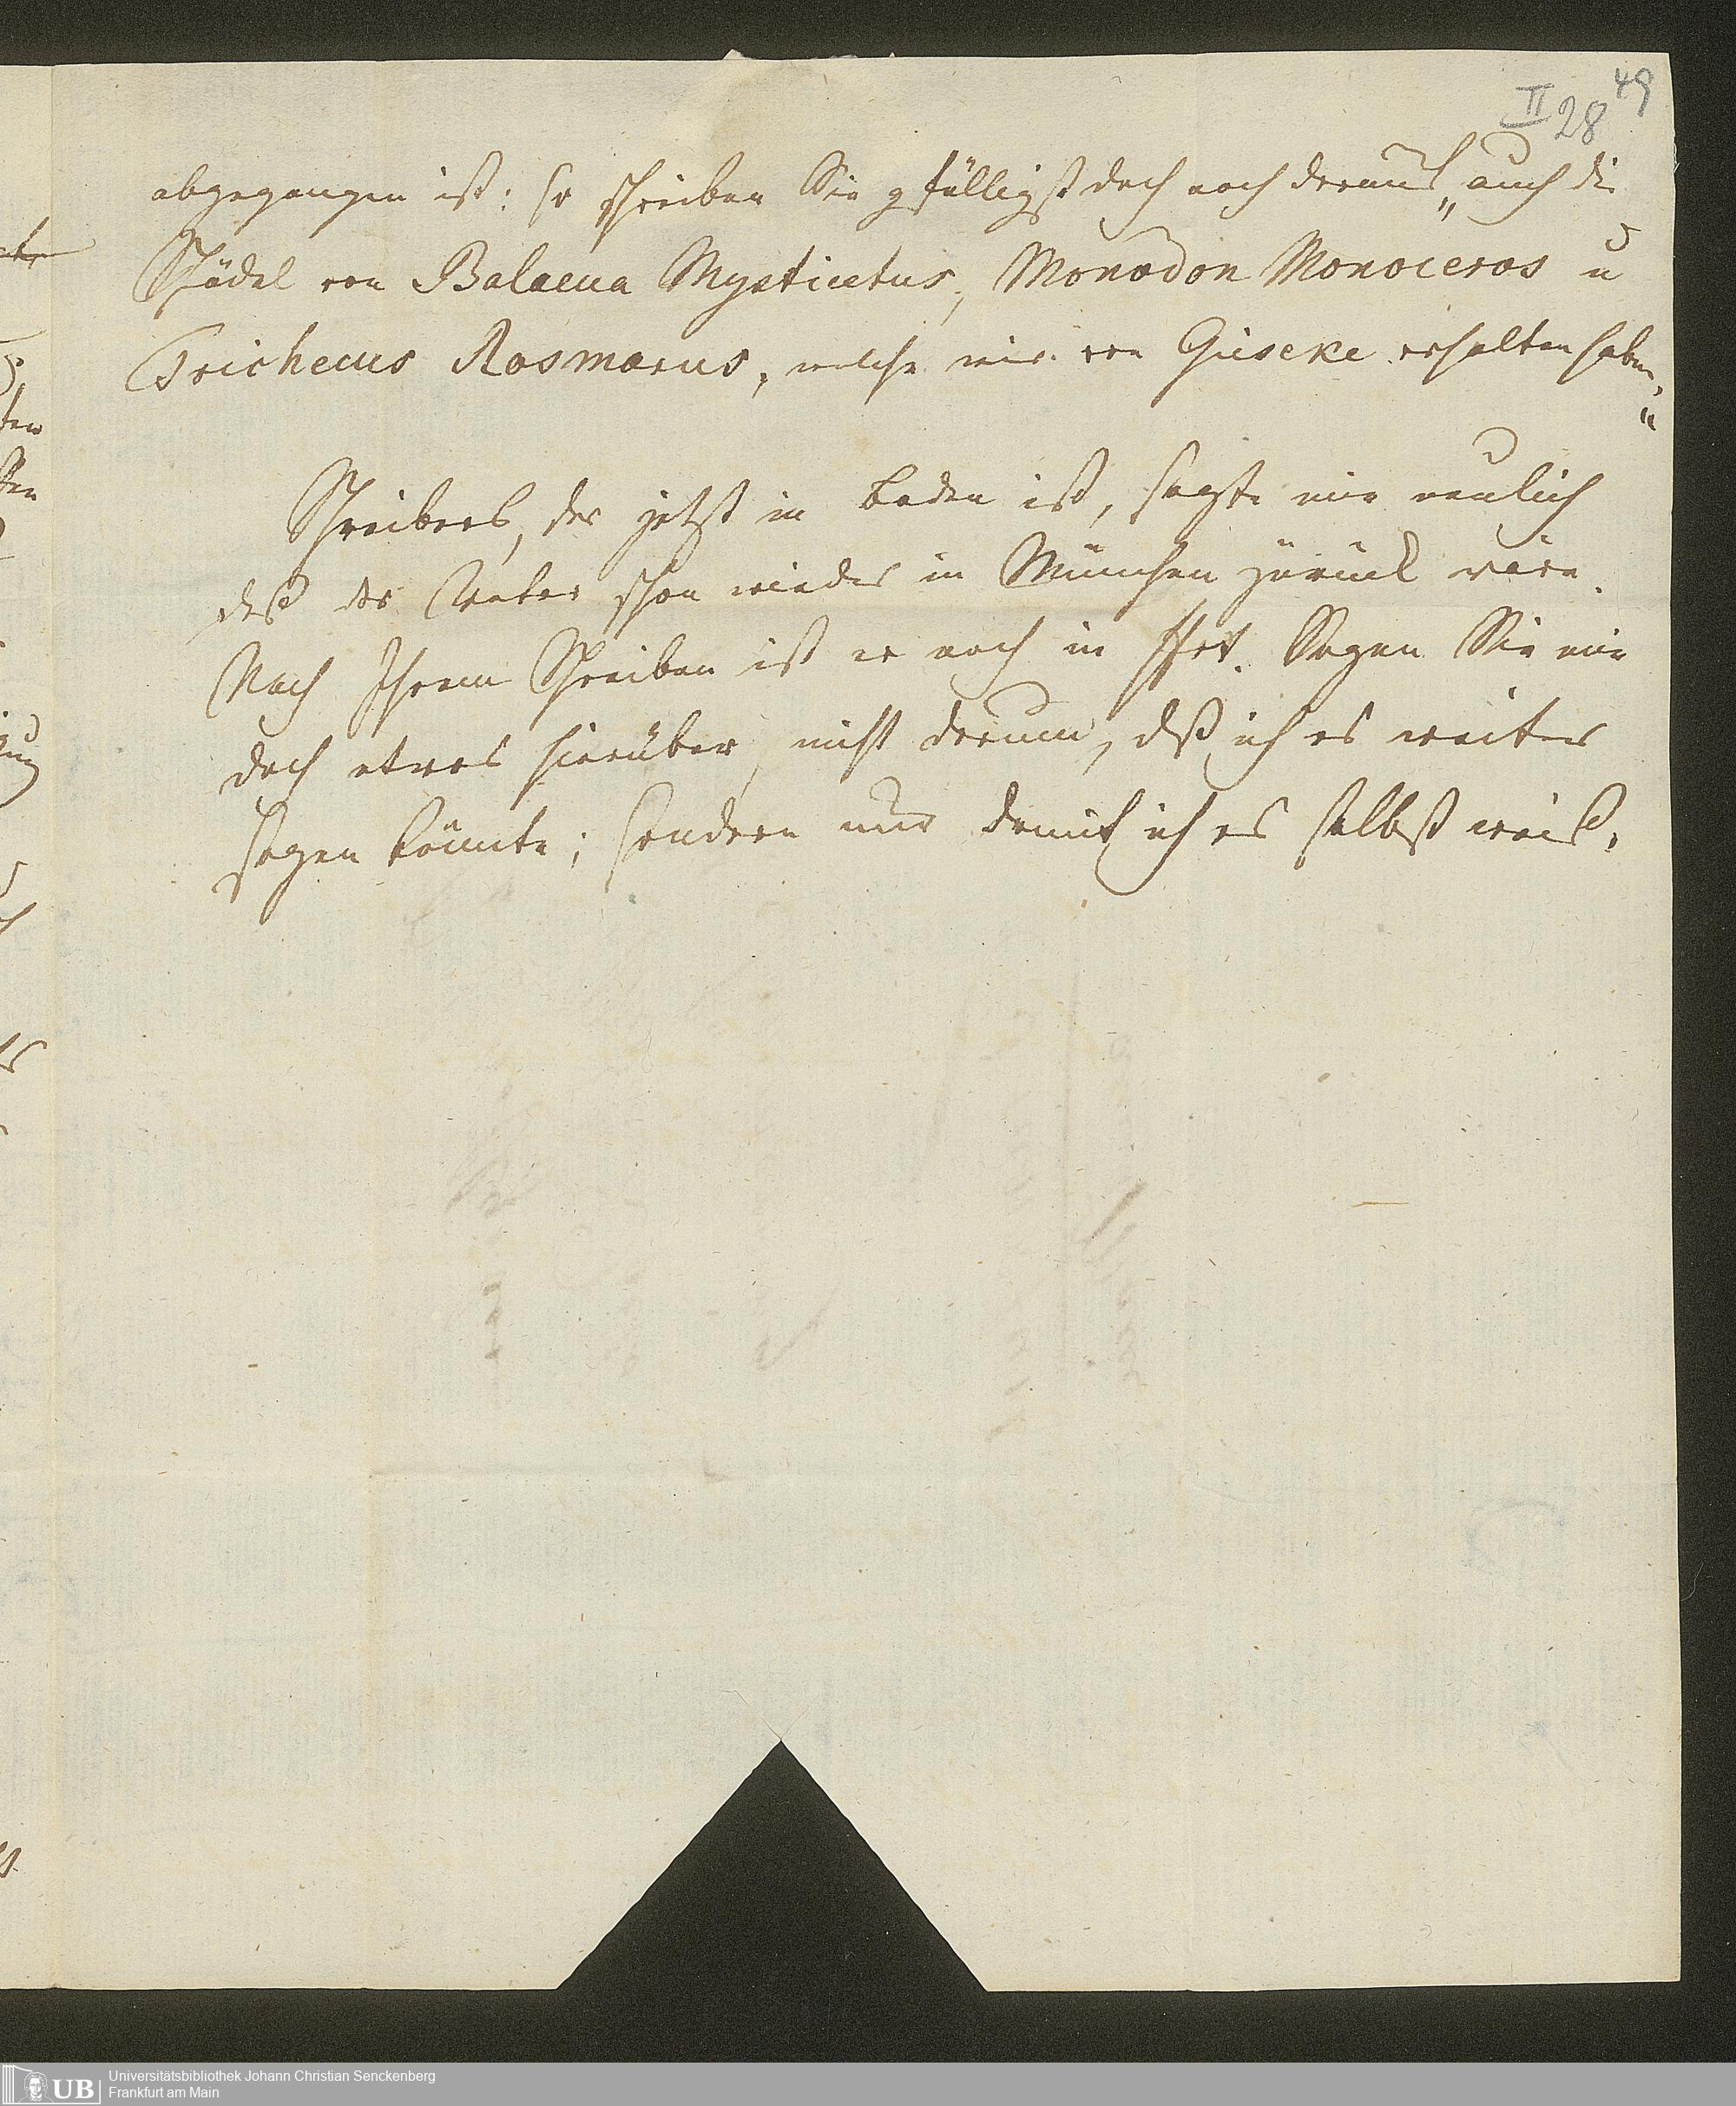 49
II 28
abgegangen ist: so schreiben Sie gefälligst doch noch darauf „auch die
Schädel von Balaena Mysticetus, Monodon Monoceros u
Trichecus Rosmarus, welche wir von Giseke erhalten haben,“
Schreibers, der jetzt in Baden ist, sagte mir neulich
daß der Vater schon wieder in München zurück wäre.
Nach Ihrem Schreiben ist er noch in Ffrt. Sagen Sie mir
doch etwas hierüber, nicht darum, daß ich es weiter
sagen könnte; sondern nur damit ich es selbst weiß.
UB Universitätsbibliothek Johann Christian Senckenberg
Frankfurt am Main